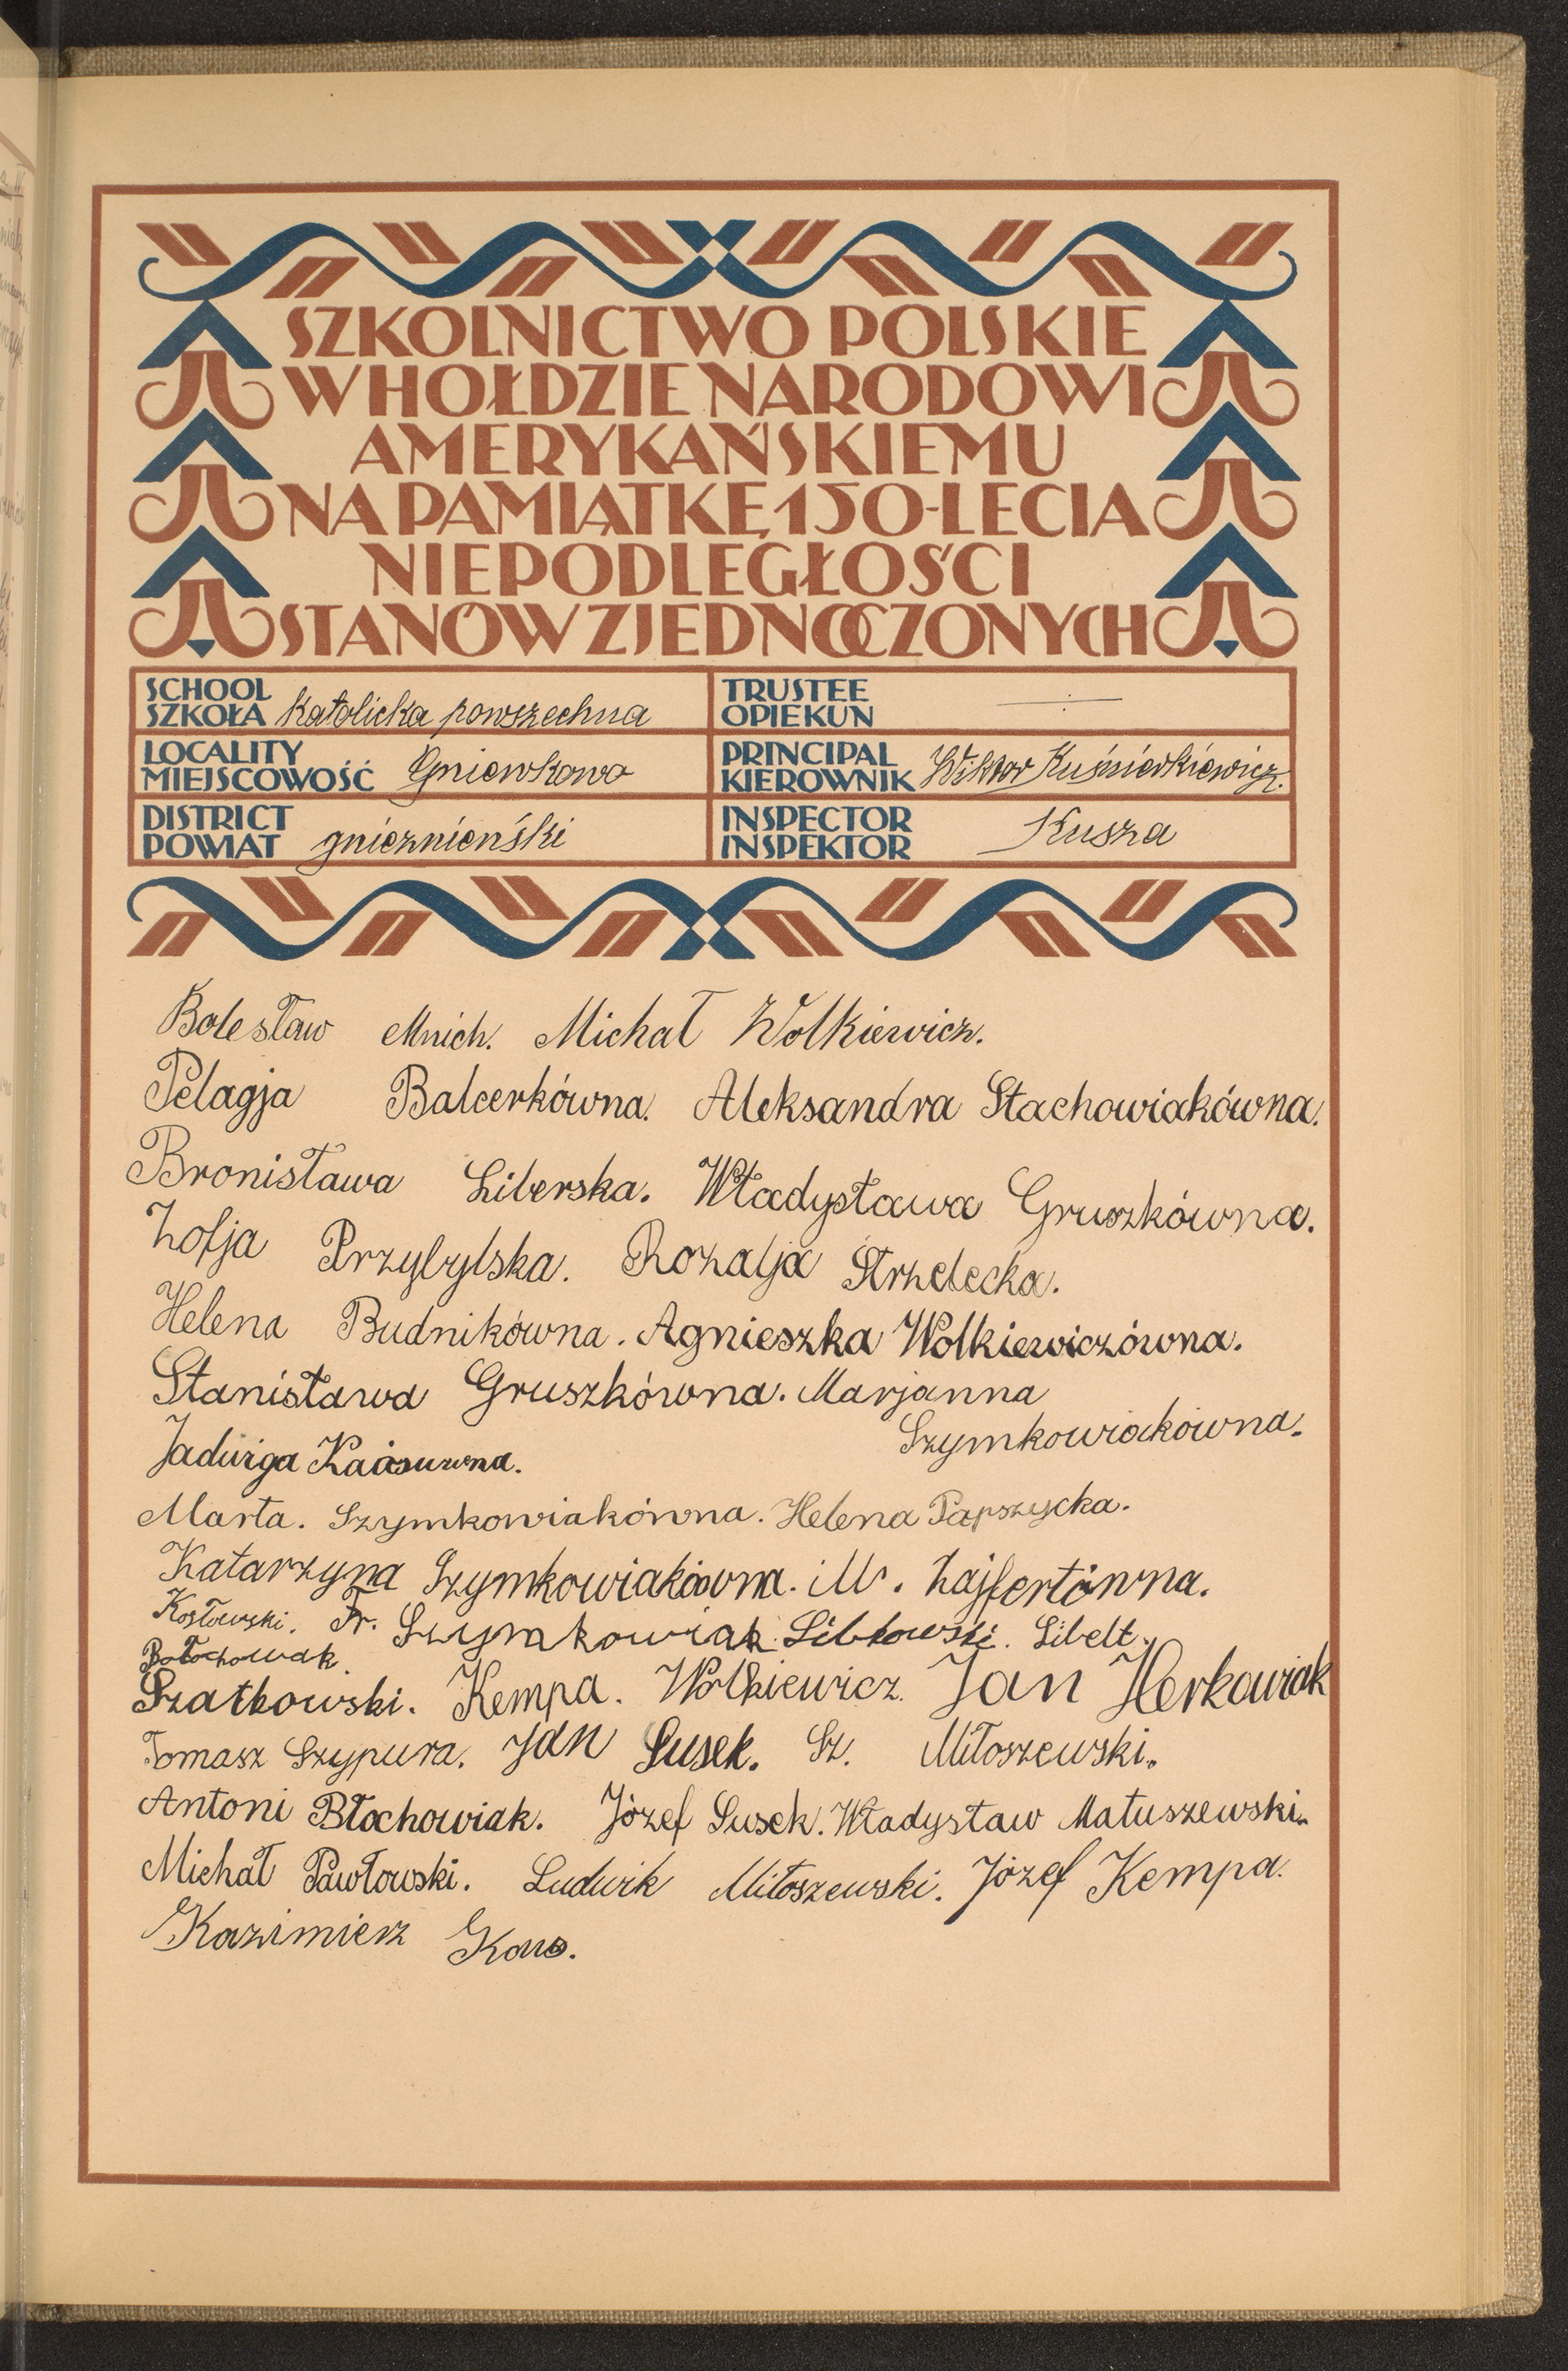 SZKOLNICTWO POLSKIE
W HOŁDZIE NARODOWI
AMERYKAŃSKIEMU
NA PAMIĄTKĘ 150-LECIA
NIEPODLEGŁOŚCI
STANÓW ZJEDNOCZONYCH
SCHOOL
SZKOŁA Katolicka powszechna
TRUSTEE
OPIEKUN
LOCALITY
MIEJSCOWOŚĆ Gniewkowo
PRINCIPAL
KIEROWNIK Wiktor Kuśnierkiewicz.
DISTRICT
POWIAT gnieznieński
INSPECTOR
INSPEKTOR Kusza
Bolesław Mnich. Michał Wolkiewicz.
Pelagja Balcerkówna. Aleksandra Stachowiakówna.
Bronisława Liberska. Władysława Gruszkówna.
Zofja Przybylska. Rozalja Strzelecka.
Helena Budnikówna. Agnieszka Wolkiewiczówna.
Stanisława Gruszkówna. Marjanna
Szymkowiakówna.
Jadwiga
Marta. Szymkowiakówna. Helena Papszycka.
Katarzyna Szymkowiakówna. M. Zajfertówna.
Kosłowski. Fr. Szymkowiak. Libkowski. Libelt.
Szatkowski. Kempa. Wolkiewicz. Jan Herkowiak
Tomasz Szypura. Jan Susek. Sz. Miłoszewski.
Antoni Błochowiak. Józef Susek. Władysław Matuszewski.
Michał Pawłowski. Ludwik Miłoszewski. Józef Kempa.
Kazimierz